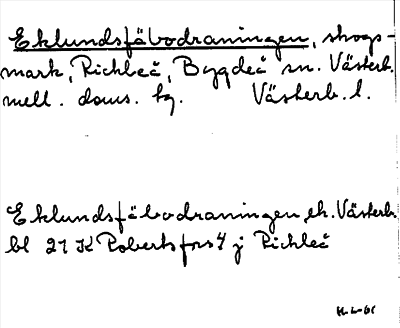 Eklundsfäbodraningen, skogs-
mark, Richleå, Bygdeå sn. Västerb.
mell. doms. tg. Västerb. l.
Eklundsfäbodraningen, ek. Västerb.
bl 21 K Robertsfors 4 j Richleå
H. L-61